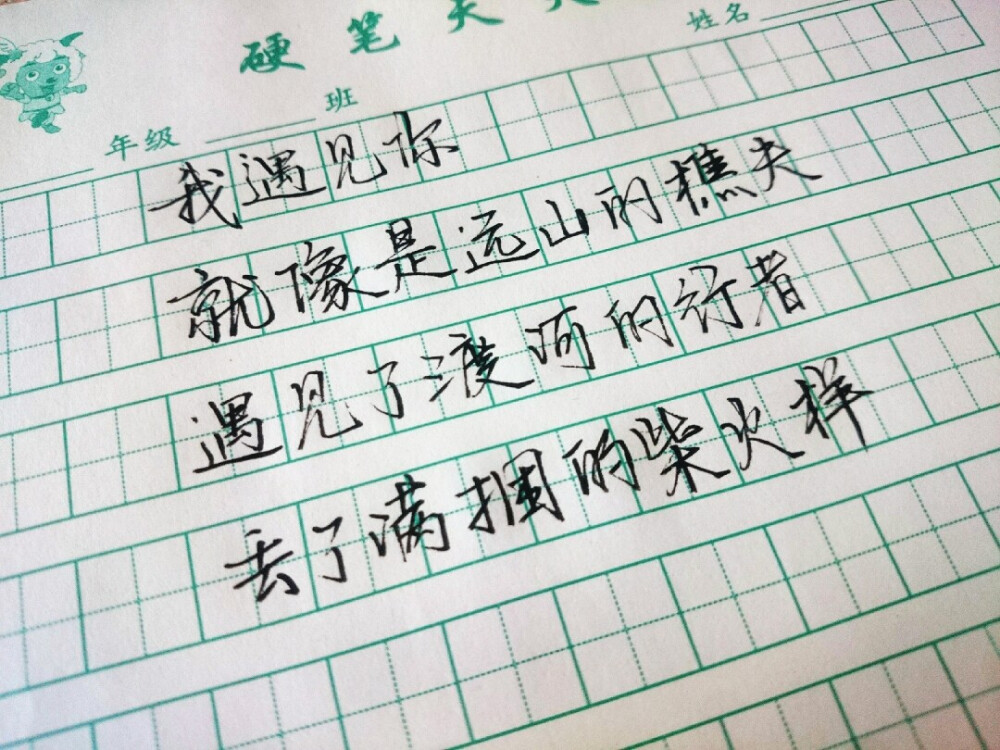 硬笔天天
姓名
年级 班
我遇见你
就像是远山的樵夫
遇见了渡河的行者
丢了满捆的柴火样